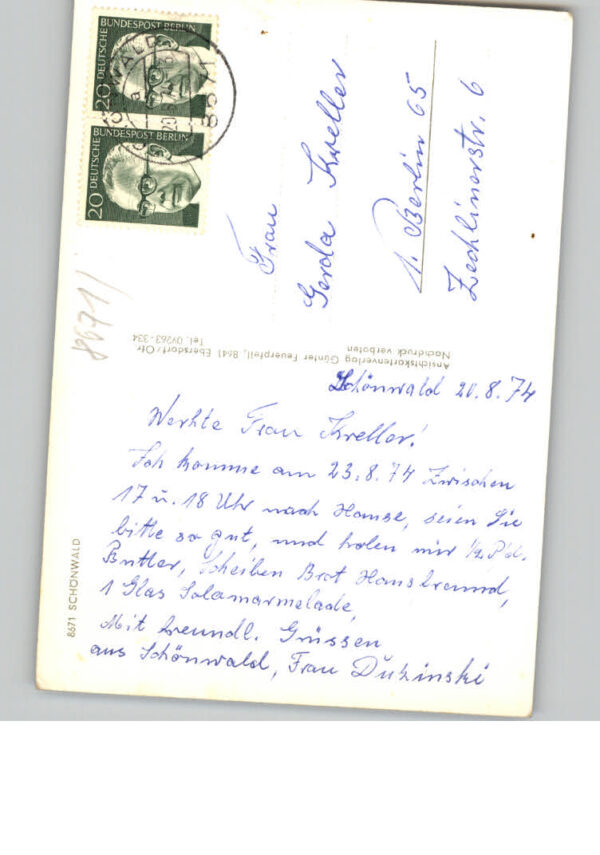 20 DEUTSCHE BUNDESPOST BERLIN
20 DEUTSCHE BUNDESPOST BERLIN
8671
8671/
Frau
Gerda Kreller
1. Berlin 65
Zechlinerstr. 6
Ansichtskartenverlag Günter Feuerpfeil, 8641 Ebersdorf/Ofr
Nachdruck verboten Tel. 09263-334
8671 SCHÖNWALD
Schönwald 20.8.74
Werhte Frau Kreller!
Ich komme am 23.8.74 zwischen
17 u. 18 Uhr nach Hause, seien Sie
bitte so gut, und holen mir ½ Pfd.
Butter, Scheiben Brot Hausfreund,
1 Glas Solamarmelade,
Mit freundl. Grüssen
aus Schönwald, Frau Duzinski